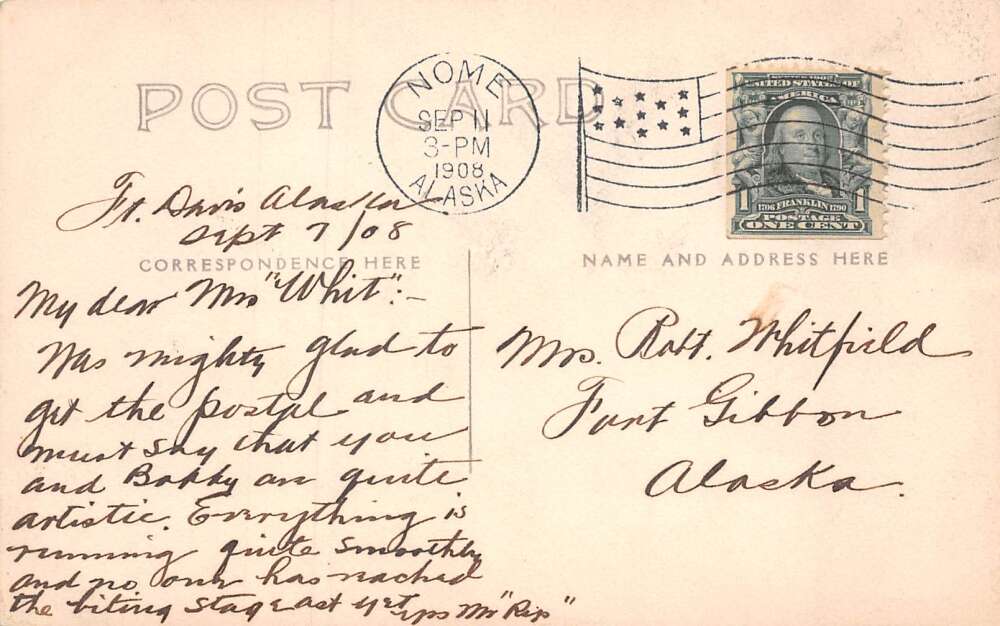 POST CARD
NOME
SEP 11
3-PM
1908
ALASKA
SERIES 1902
UNITED STATES OF
AMERICA
1 1706 FRANKLIN 1790 1
POSTAGE
ONE CENT
Ft. Davis Alaska
Sept 7/08
CORRESPONDENCE HERE
NAME AND ADDRESS HERE
My dear Mrs "Whit":-
Was mighty glad to
get the postal and
must say that you
and Bobby are quite
artistic. Everything is
running quite smoothly
and no one has reached
the biting stage as yet
Mrs. Robt. Whitfield
Fort Gibbon
Alaska.